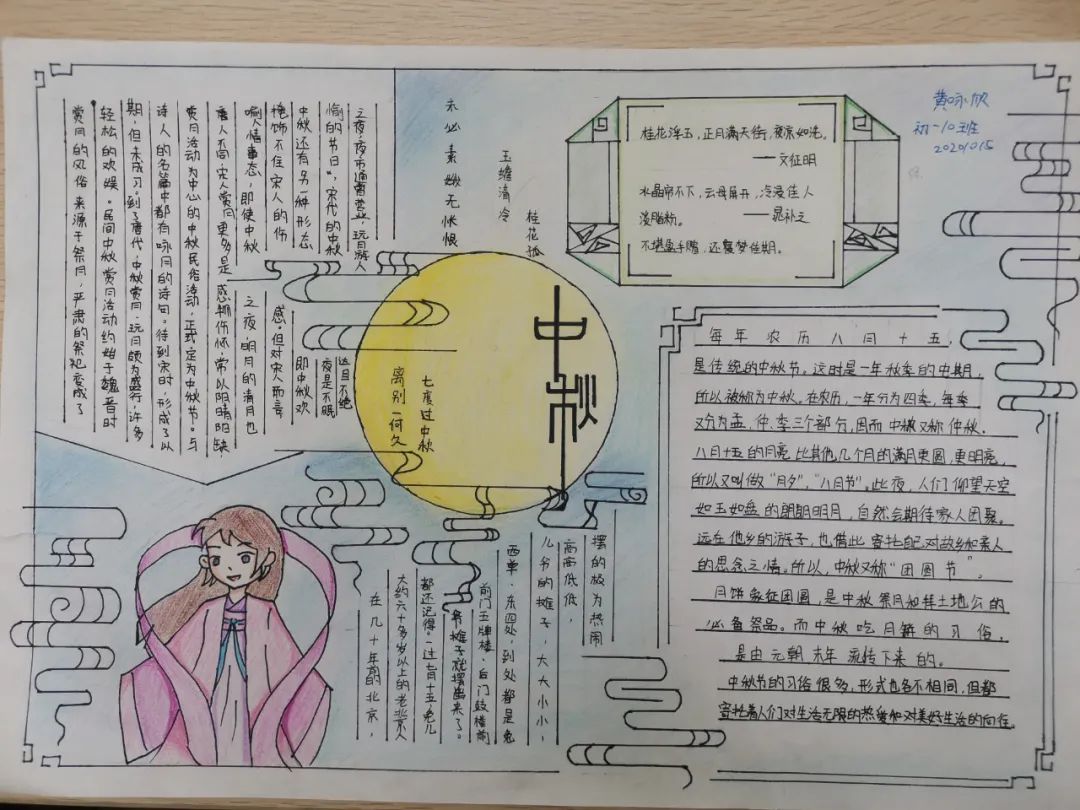 赏月的风俗来源于祭月,严肃的祭祀变成了
轻松的欢娱。民间中秋赏月活动约始于魏晋时
期,但未成习。到了唐代,中秋赏月、玩月颇为盛行,许多
诗人的名篇中都有咏月的诗句。待到宋时,形成了以
赏月活动为中心的中秋民俗活动,正式定为中秋节。与
唐人不同,宋人赏月更多是感物伤怀,常以阴晴阳缺,
喻人情事态,即使中秋
之夜,明月的清月也
掩饰不住宋人的伤
感。但对宋人而言,
中秋还有另一种形态
即中秋欢
愉的节日",宋代的中秋
夜是不眠
之夜,夜市通宵营业,玩月游人
达旦不绝
未必素娥无怅恨
玉蟾清冷
桂花孤
桂花浮玉,正月满天街,夜凉如洗。
——文征明
水晶帘不下,云母屏开,冷浸佳人
淡脂粉。 ——晁补之
不堪盈手赠,还寝梦佳期。
黄咏欣
初一10班
20201015
中秋
七度过中秋
离别一何久
每年农历八月十五,
是传统的中秋节。这时是一年秋季的中期,
所以被称为中秋。在农历,一年分为四季,每季
又分为孟、仲、季三个部分,因而中秋又称仲秋。
八月十五的月亮比其他几个月的满月更圆,更明亮,
所以又叫做“月夕”,“八月节”。此夜,人们仰望天空
如玉如盘的朗朗明月,自然会期待家人团聚。
远在他乡的游子,也借此寄托自己对故乡和亲人
的思念之情。所以,中秋又称“团圆节”。
月饼象征团圆,是中秋祭月和拜土地公的
必备祭品。而中秋吃月饼的习俗,
是由元朝末年流传下来的。
中秋节的习俗很多,形式也各不相同,但都
寄托着人们对生活无限的热爱和对美好生活的向往。
在几十年前的北京,
大约六十多岁以上的老北京人
都还记得。一过七月十五,兔儿
爷摊子就摆出来了。
前门五牌楼、后门鼓楼前
西单、东四处,到处都是兔
儿爷的摊子,大大小小、
高高低低,
摆的极为热闹